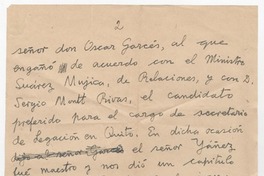 2
señor don Oscar Garcés, al que
engañó de acuerdo con el Ministro
Suárez Mujica, de Relaciones, y con D.
Sergio Montt Rivas, el candidato
preferido para el cargo de secretario
de Legación en Quito. En dicha ocasión
el señor Yáñez
fue maestro y nos dió un capítulo